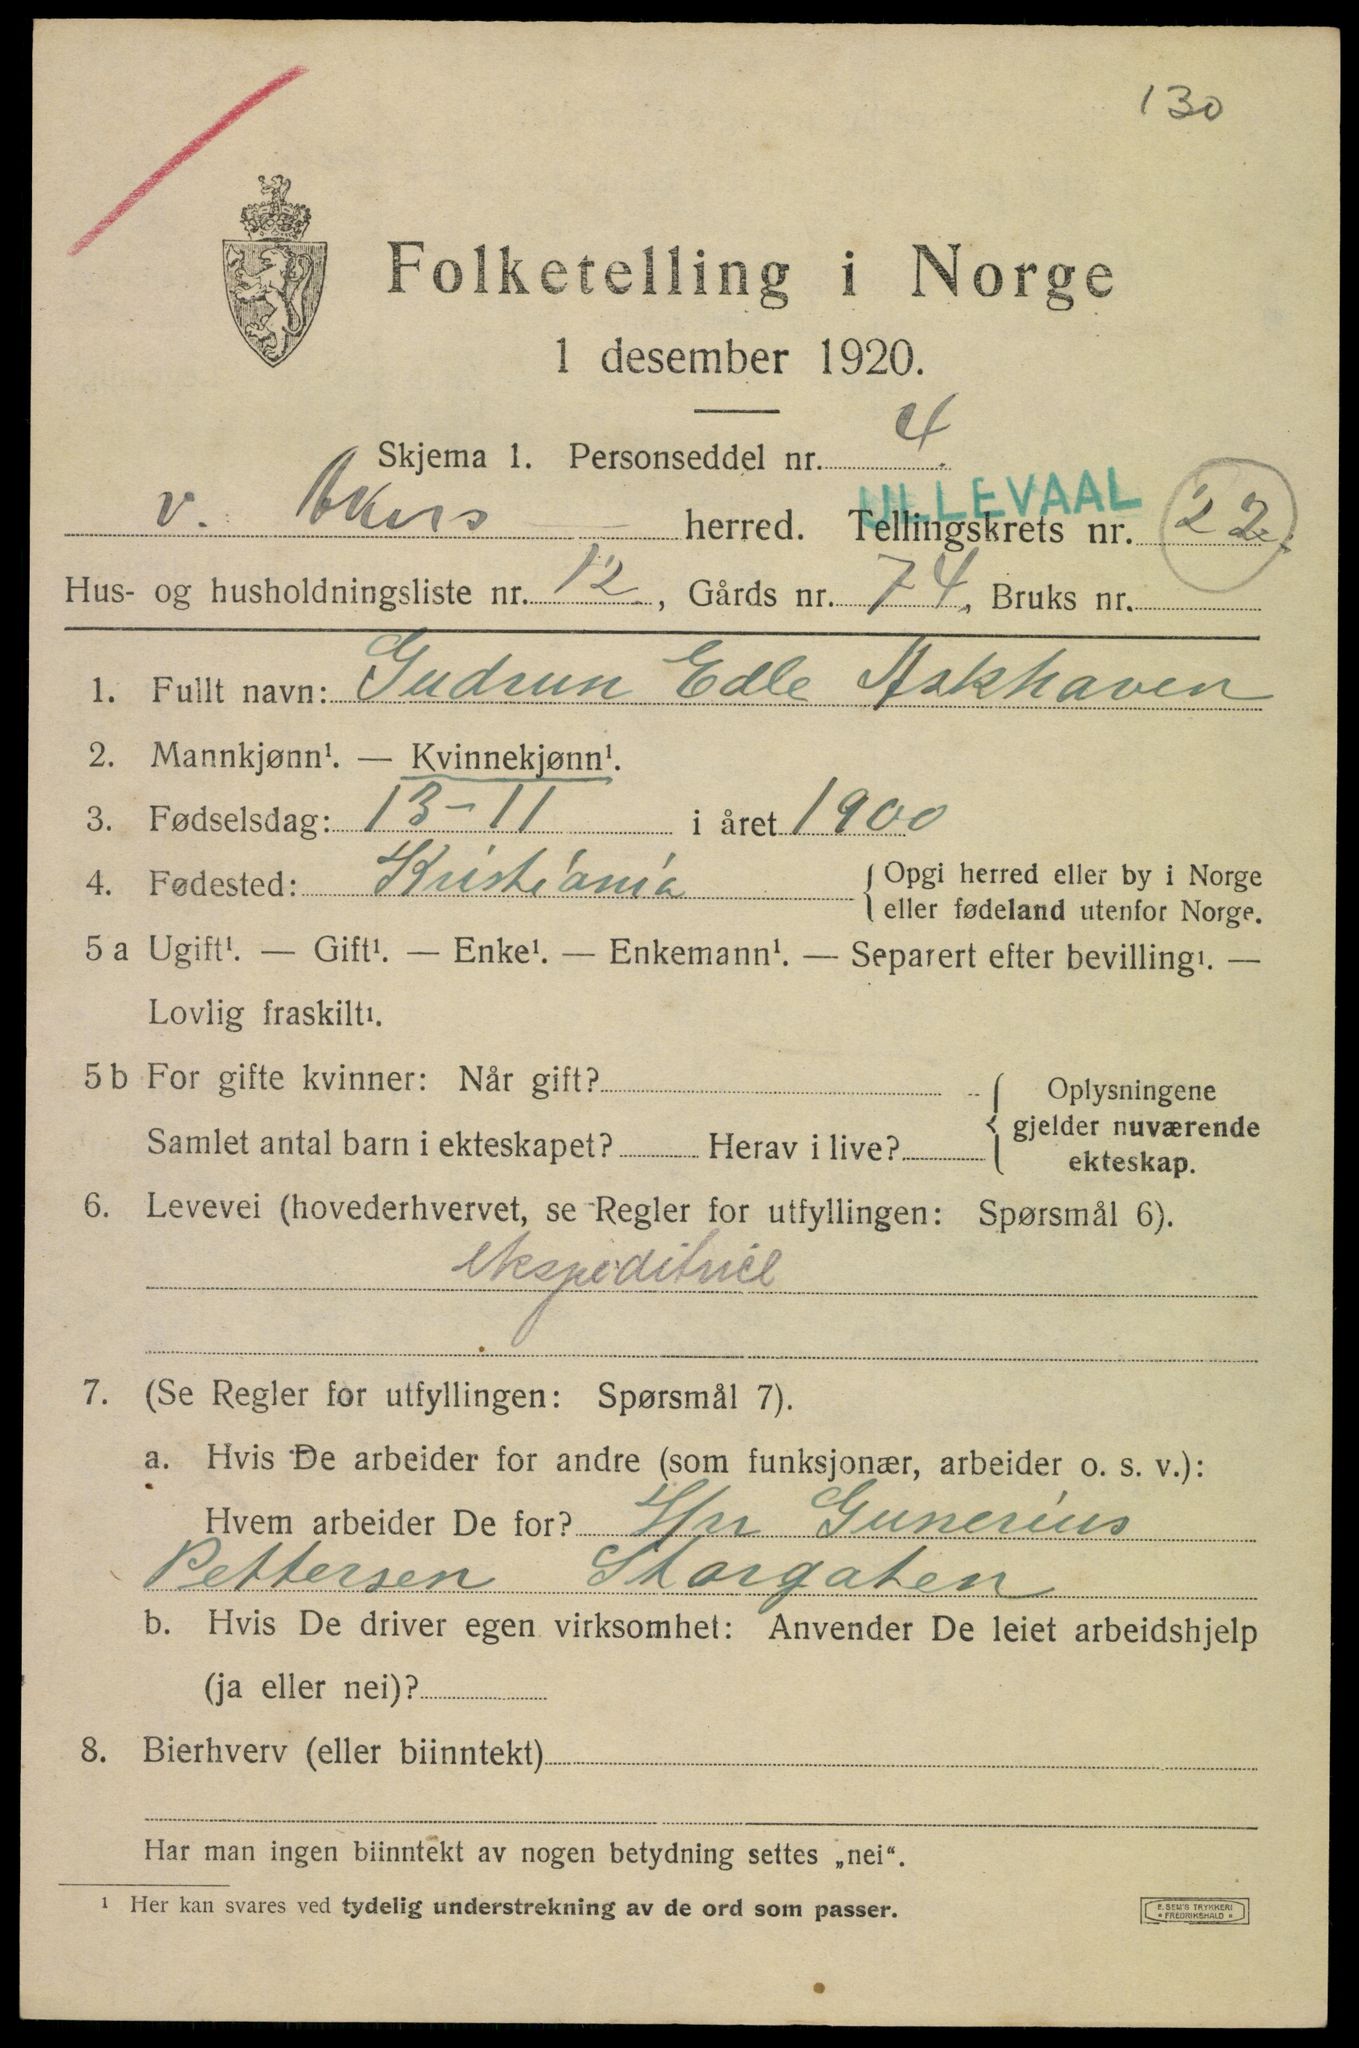 130
Folketelling i Norge
1 desember 1920.
Skjema 1. Personseddel nr. 4.
ULLEVAAL
v. Akers herred. Tellingskrets nr. 22
Hus- og husholdningsliste nr. 12, Gårds nr. 74, Bruks nr.
1. Fullt navn: Gudrun Edle Askhaven
2. Mannkjønn¹. — Kvinnekjønn¹.
3. Fødselsdag: 13-11 i året 1900
4. Fødested: Kristiania { Opgi herred eller by i Norge
eller fødeland utenfor Norge.
5 a Ugift¹. — Gift¹. — Enke¹. — Enkemann¹. — Separert efter bevilling¹. —
Lovlig fraskilt¹.
5 b For gifte kvinner: Når gift? { Oplysningene
gjelder nuværende
Samlet antal barn i ekteskapet? Herav i live? ekteskap.
6. Levevei (hovederhvervet, se Regler for utfyllingen: Spørsmål 6).
ekspeditrice
7. (Se Regler for utfyllingen: Spørsmål 7).
a. Hvis De arbeider for andre (som funksjonær, arbeider o. s. v.):
Hvem arbeider De for? Hrr Gunerius
Pettersen Storgaten
b. Hvis De driver egen virksomhet: Anvender De leiet arbeidshjelp
(ja eller nei)?
8. Bierhverv (eller biinntekt)
Har man ingen biinntekt av nogen betydning settes „nei“.
¹ Her kan svares ved tydelig understrekning av de ord som passer.
E. SEM'S TRYKKERI
* FREDRIKSHALD *